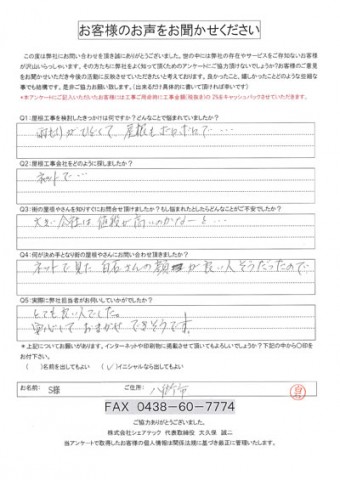 お客様のお声をお聞かせください
この度は弊社にお問い合わせを頂き誠にありがとうございました。世の中には弊社の存在やサービスをご存知ないお客様
が沢山いらっしゃいます。その方たちに弊社をよく知って頂くためのアンケートにご協力頂けないでしょうか?お客様のご意見
をお聞かせいただき今後の活動に反映させていただきたいと考えております。良かったこと、嬉しかったことどのような些細な
事でも結構です。是非ご協力お願い致します。(出来るだけ具体的に書いて頂ければ幸いです)
*本アンケートにご記入いただいたお客様には工事ご用命時に工事金額(税抜き)の2%をキャッシュバックさせていただきます。
Q1:屋根工事を検討したきっかけは何ですか?どんなことで悩まれていましたか?
雨もりがひどくて、屋根もボロボロで…
Q2:屋根工事会社をどのように探しましたか?
ネットで…
Q3:街の屋根やさんを知りすぐにお問合せ頂けましたか?もし悩まれたとしたらどんなことがご不安でしたか?
大きい会社は値段が高いのかなーと…
Q4:何が決め手となり街の屋根やさんにお問い合わせ頂きましたか?
ネットで見た白石さんの顔が良い人そうだったので…
Q5:実際に弊社担当者がお伺いしていかがでしたか?
とても良い人でした。
安心しておまかせできそうです。
*上記についてお願いがあります。インターネットや印刷物に掲載させて頂いてもよろしいでしょうか?下記の中から〇印を
お付下さい。
( )名前を出してもよい (✓)イニシャルなら出してもよい
お名前: S様 ご住所: 八街市
FAX 0438-60-7774
ご協力ありがとうございました。
株式会社シェアテック 代表取締役 大久保 誠二
当アンケートで取得したお客様の個人情報は関係法規に基づき厳正に管理いたします。